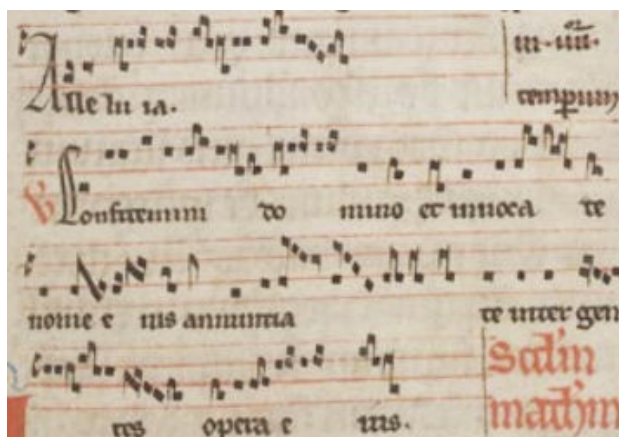 Alle lu ia.
in · iiii or ·
tempum
V Confitemini do mino et inuoca te
nome e ius annuntia te inter gen
tes opera e ius.
Scdm